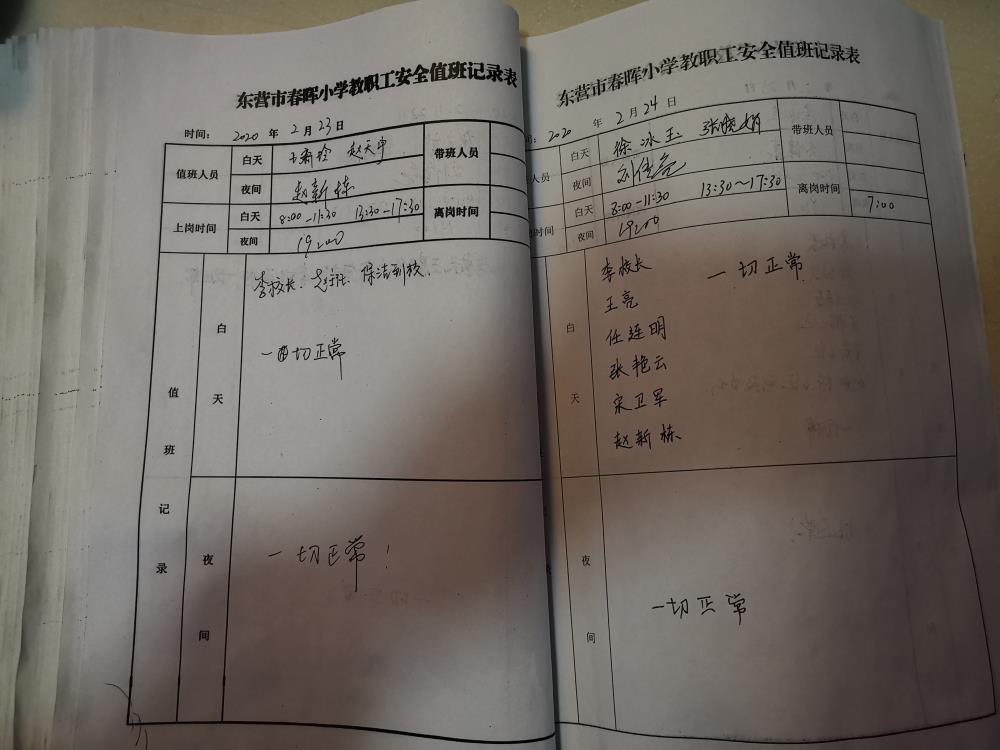 东营市春晖小学教职工安全值班记录表
时间：2020 年 2 月 23 日
值班人员 白天 赵天宇 带班人员
夜间 赵新栋
上岗时间 白天 8:00-11:30 13:30-17:30 离岗时间
夜间 19:00
值班记录 白天 李校长、赵主任、保洁到校.
一切正常
夜间 一切正常！
东营市春晖小学教职工安全值班记录表
间：2020 年 2 月 24 日
人员 白天 徐冰玉 张晓娟 带班人员
夜间 刘佳亮
时间 白天 8:00-11:30 13:30~17:30 离岗时间 7:00
夜间 19:00
白天 李校长 一切正常
王亮
任连明
张艳云
宋卫军
赵新栋
夜间 一切正常